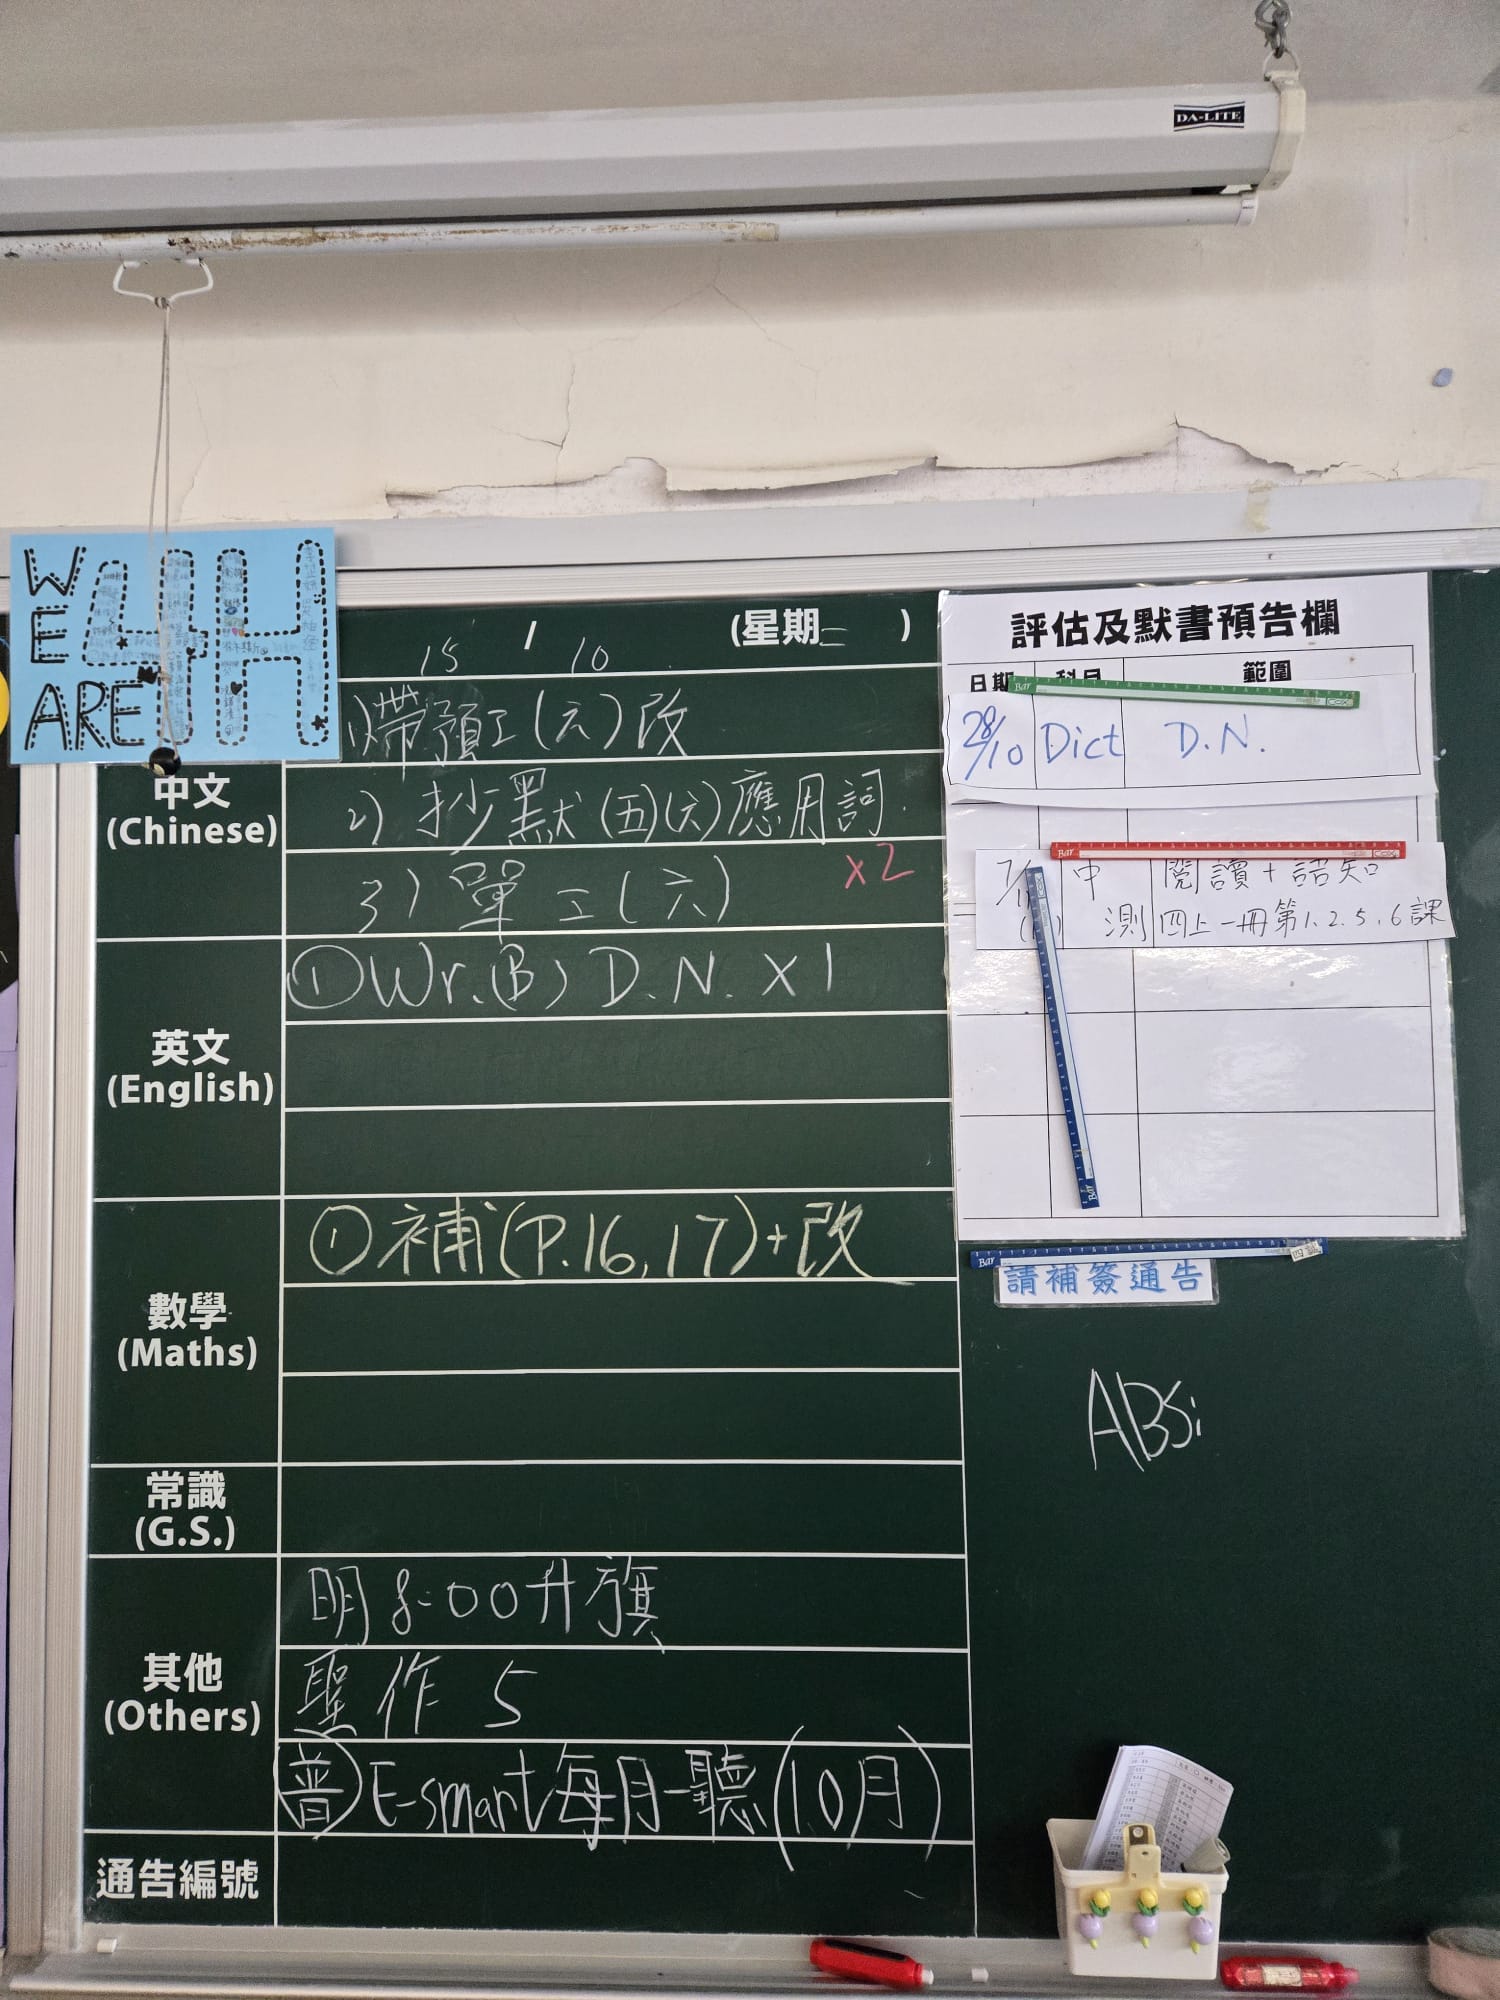 DA-LITE
WE ARE 4H
15 / 10 (星期三)
中文
(Chinese)
1) 帶預工(六)改
2) 抄默(五)(六)應用詞.
x2
3) 單工(六)
英文
(English)
① Wr.(B) D.N. X 1
數學
(Maths)
① 補(P.16,17)+改
常識
(G.S.)
其他
(Others)
明8:00升旗
聖作 5
普 E-smart每月一聽(10月)
通告編號
評估及默書預告欄
日期 科目 範圍
28/10 Dict D.N.
7/11 中 閱讀+語知
測 四上一冊第1.2.5.6課
Bar
Bar
Bar
Bar
請補簽通告
ABS: